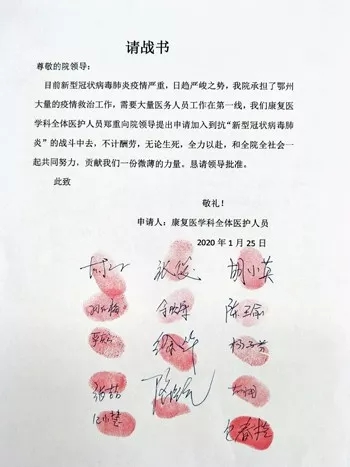 请战书
尊敬的院领导：
目前新型冠状病毒肺炎疫情严重，日趋严峻之势，我院承担了鄂州
大量的疫情救治工作，需要大量医务人员工作在第一线，我们康复医
学科全体医护人员郑重向院领导提出申请加入到抗“新型冠状病毒肺
炎”的战斗中去，不计酬劳，无论生死，全力以赴，和全院全社会一
起共同努力，贡献我们一份微薄的力量。恳请领导批准。
此致
敬礼！
申请人：康复医学科全体医护人员
2020 年 1 月 25 日
胡小英